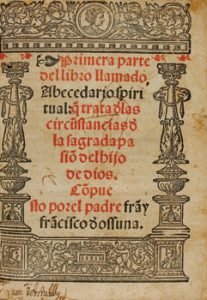 Primera parte
del libro llamado
Abecedario spiri
tual: q̃ trata d̃las
circũstancias d̃
la sagrada pa
siõ del hijo
de dios.
Cõpue
sto por el padre fray
frãcisco d̃ ossuna.